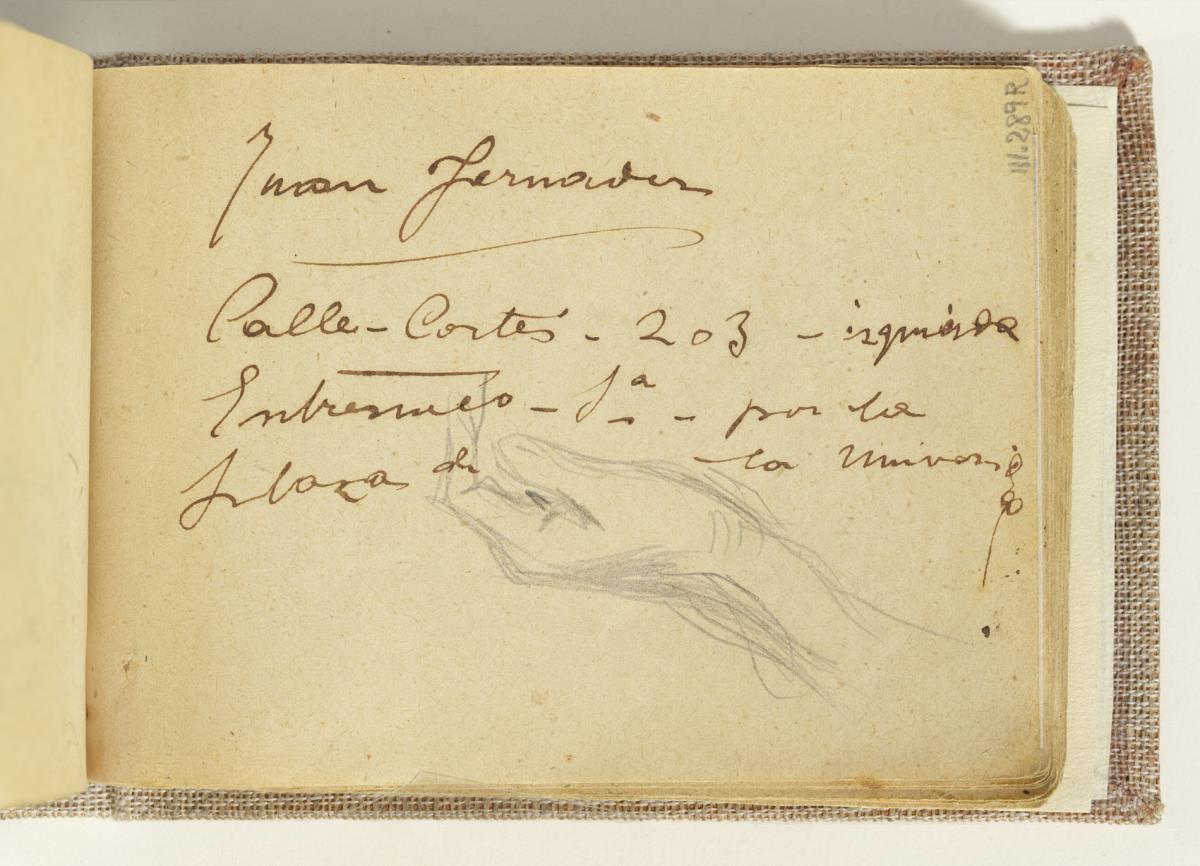 Juan Fernandez
Calle - Cortes - 203 - izquierda
Entresuelo - 1ª - por la
plaza de la Univers
111.289R